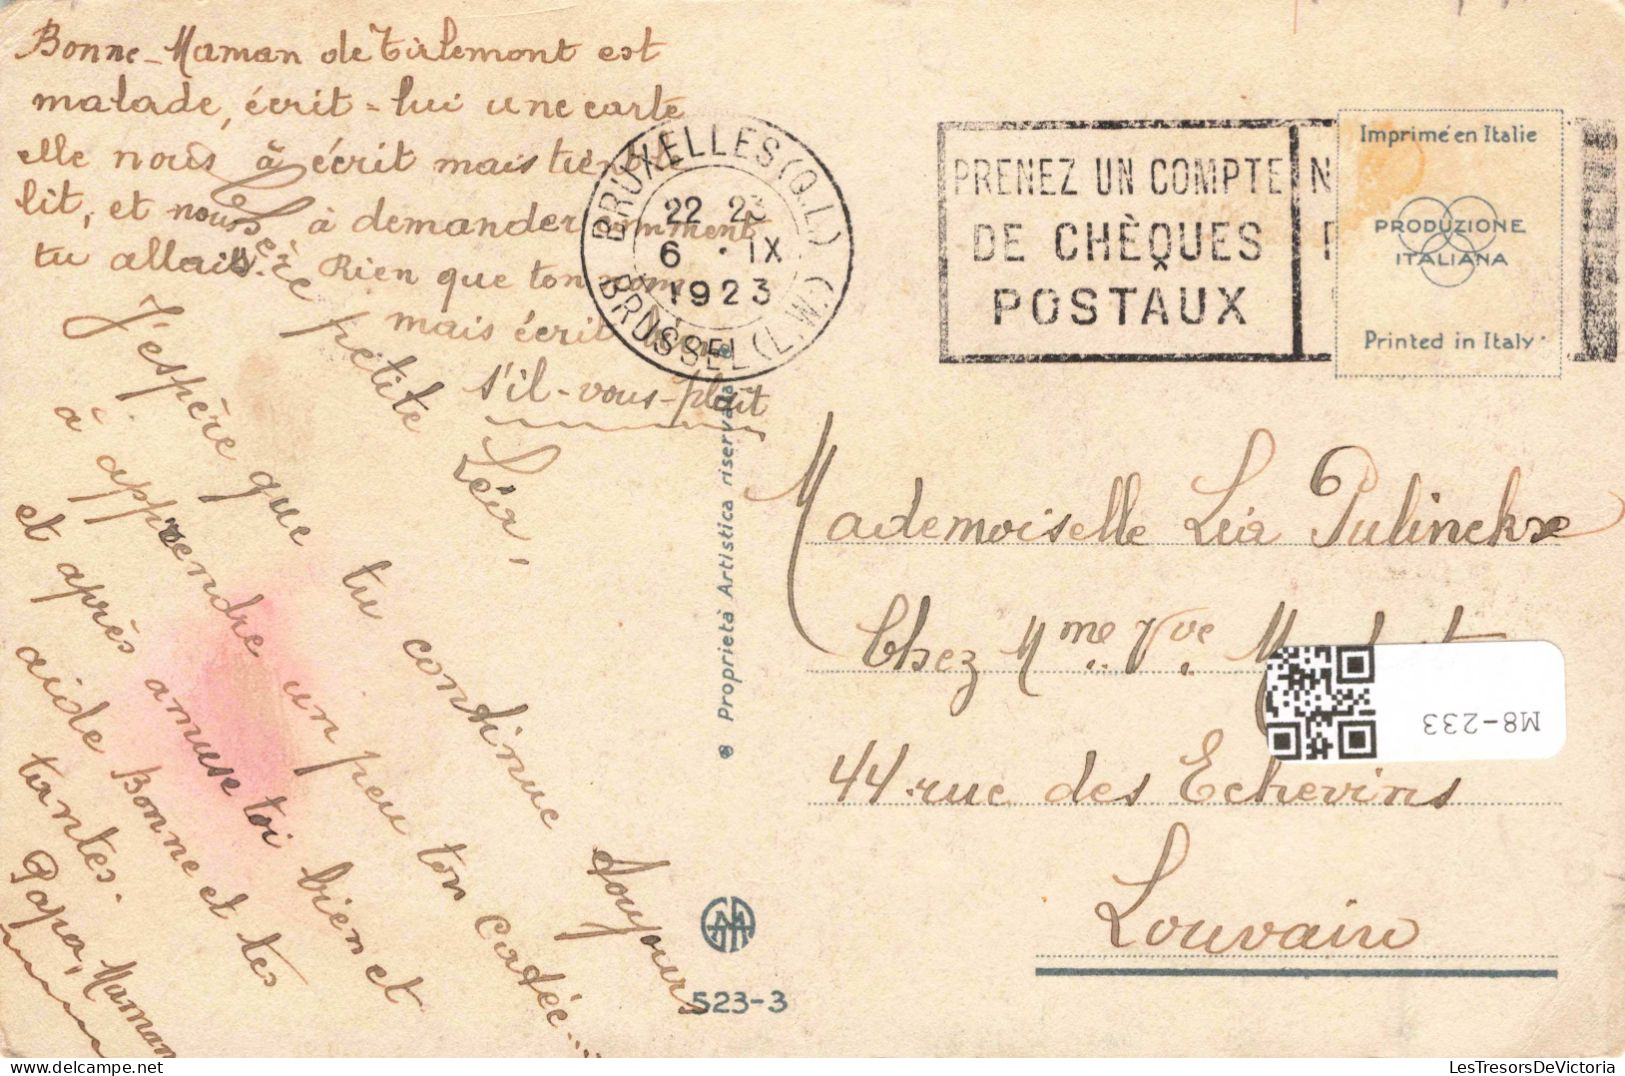 Bonne-Maman de Tirlemont est
malade, écrit-lui une carte
elle nous à écrit mais
lit, et nous à demander comment
tu allais. Rien que ton nom
mais écrit
s'il-vous-plait
petite Léa,
J'espère que tu continue toujours
à apprendre un peu ton
et après amuse toi bien et
aide Bonne et tes
tantes.
Papa, Maman
BRUXELLES (Q.L.)
22 23
6 · IX
1923
BRUSSEL (L.W.)
PRENEZ UN COMPTE
DE CHÈQUES
POSTAUX
N
Imprimé en Italie
PRODUZIONE
ITALIANA
Printed in Italy
® Proprietà Artistica riservata ®
523-3
Mademoiselle Léa Pulinckx
Chez Mme Vve
44 rue des Echevins
Louvain
M8-233
LesTresorsDeVictoria